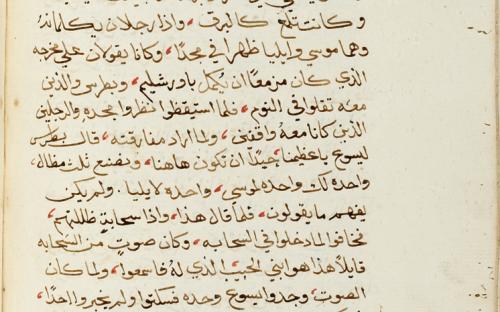 وكانت تلمع كالبرق، واذا رجلان يكلمانهُ
وهما موسي وايليا ظهرا في مجدًا، وكانا يقولان علي مخرجه
الذي كان مزمعًا ان يُكمل باورشليم، وبطرس والذين
معه تقلوا في النوم، فلما استيقظوا نظروا مجده والرجلين
الذين كانا معهُ واقفين، ولما اراد مفارقته، قال بطرس
ليسوع ياعظيمنا جيدًا ان نكون هاهنا، ونصنع تلت مظال،
واحده لك واحده لموسي، واحده لايليا. ولم يكن
يفهم مايقولون، فلما قال هذا، واذا سحابةٍ ظللتهم،
فخافوا لما دخلوا في السحابه، وكان صوتٍ من السحابه
قايلاً هذا هو ابني الحبيب الذي لهُ فاسمعوا، ولما كان
الصوت، وجدوا يسوع وحده فسكتوا ولم يخبروا احدًا،